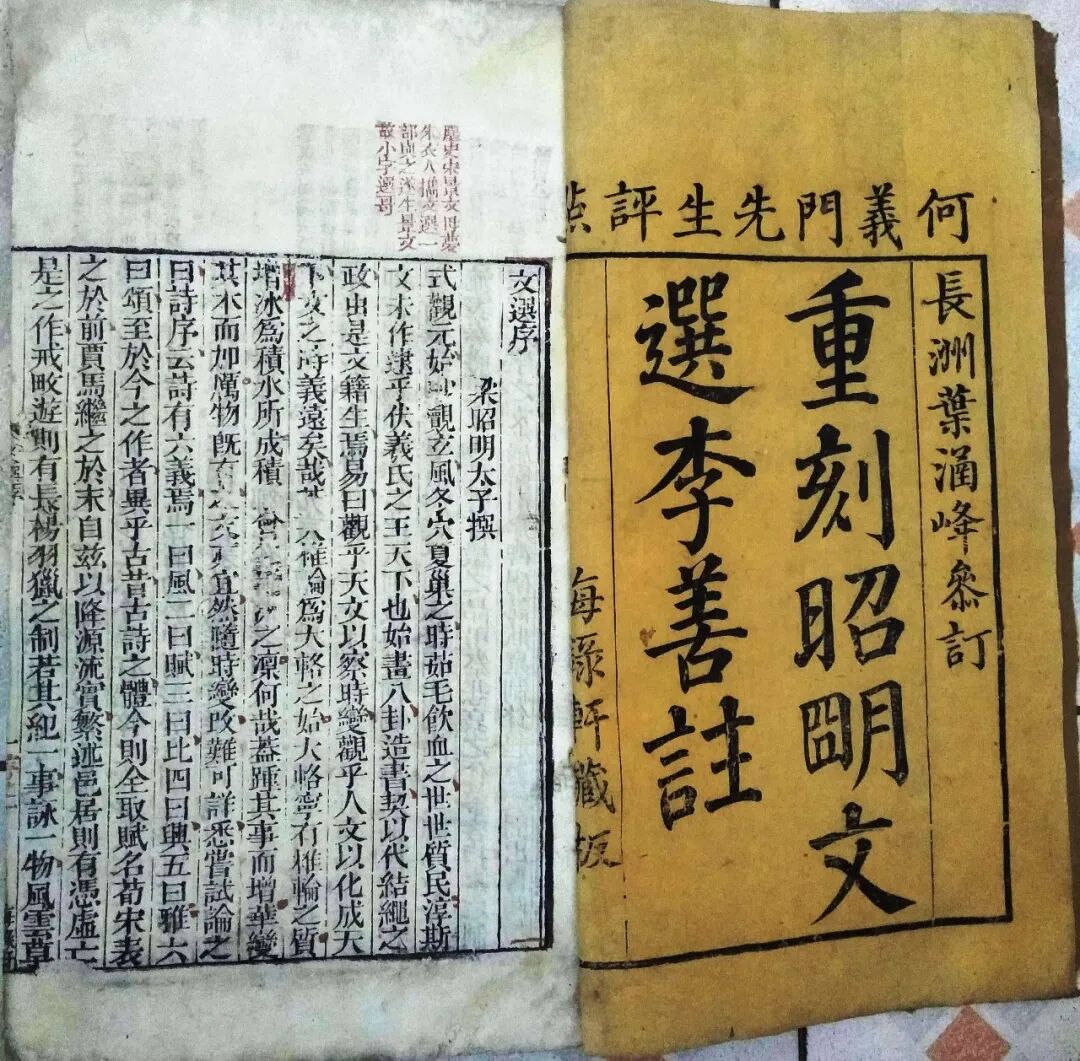 何義門先生評點
長洲葉涵峰叅訂
重刻昭明文
選李善註
海錄軒藏板
塵史宋景文母夢
朱衣人攜文選一
部與之遂生景文
故小字選哥
文選序
梁昭明太子撰
式觀元始眇覿玄風冬穴夏巢之時茹毛飲血之世世質民淳斯
文未作逮乎伏羲氏之王天下也始畫八卦造書契以代結繩之
政由是文籍生焉易曰觀乎天文以察時變觀乎人文以化成天
下文之時義遠矣哉 椎輪為大輅之始大輅寧有椎輪之質
增冰為積水所成積 之凜何哉蓋踵其事而增華變
其本而加厲物既有之文亦宜然隨時變改難可詳悉嘗試論之
曰詩序云詩有六義焉一曰風二曰賦三曰比四曰興五曰雅六
曰頌至於今之作者異乎古昔古詩之體今則全取賦名荀宋表
之於前賈馬繼之於末自茲以降源流實繁述邑居則有憑虛亡
是之作戒畋遊則有長楊羽獵之制若其紀一事詠一物風雲草